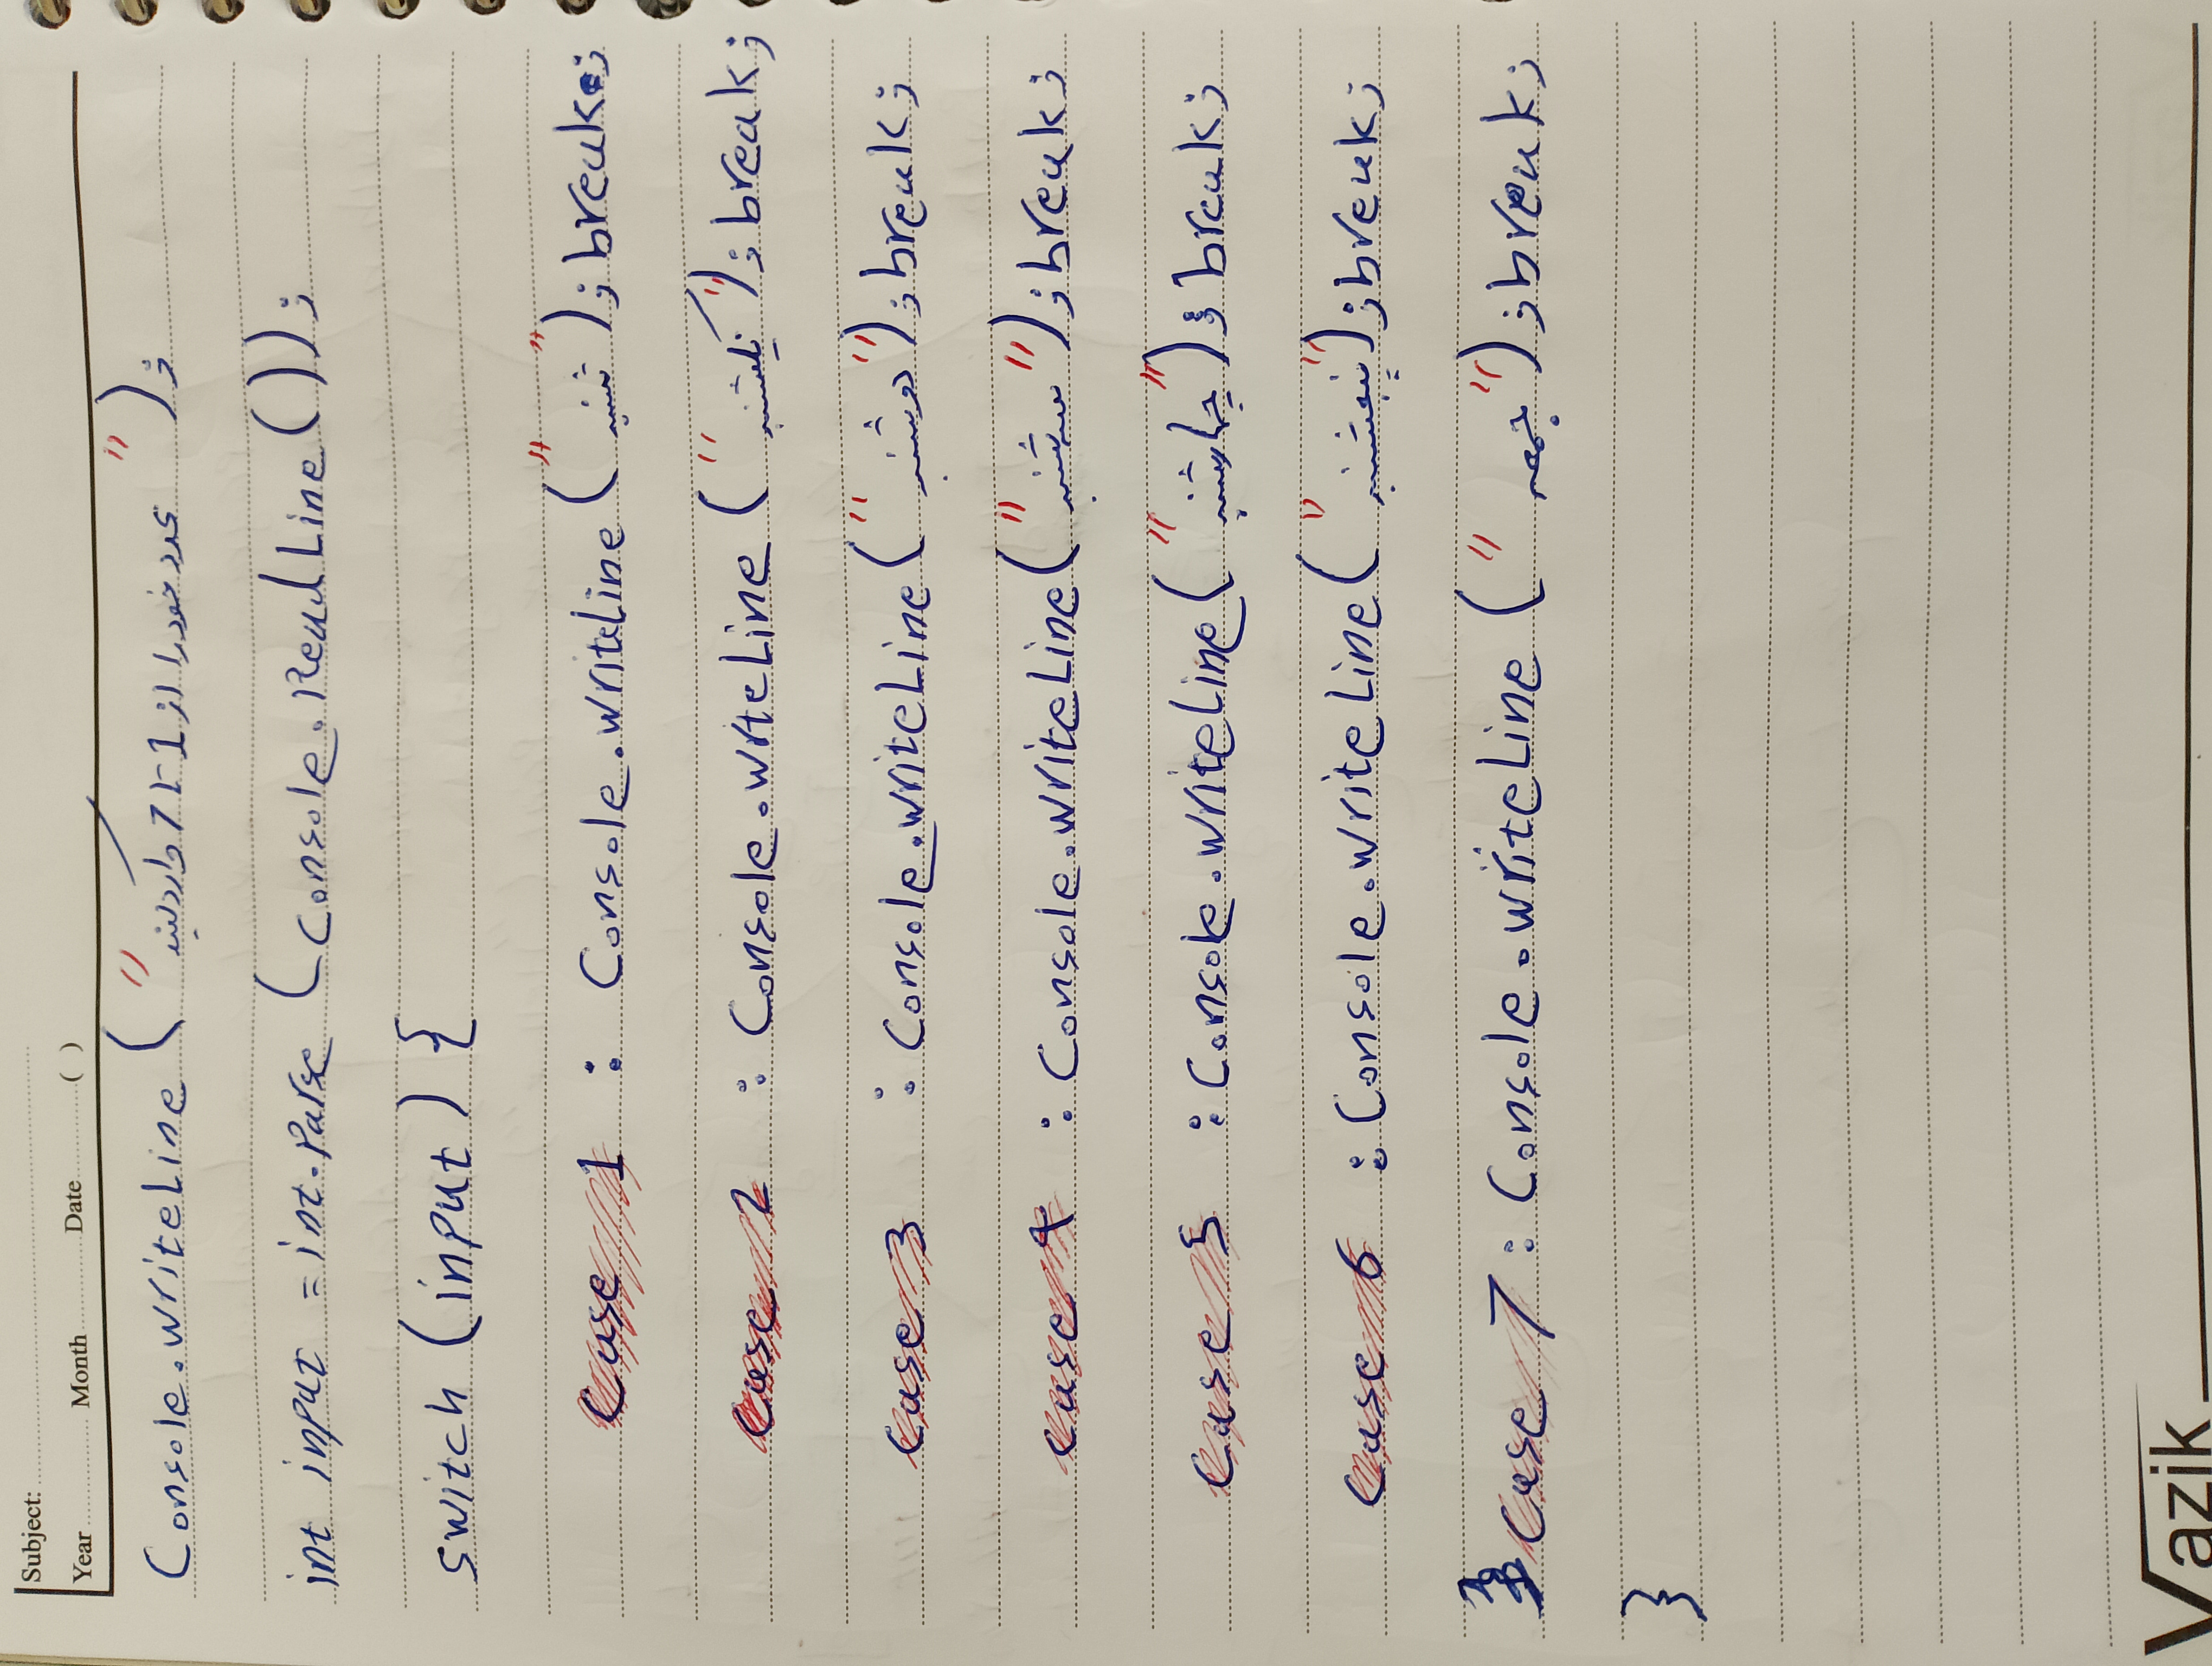 Subject:
Year Month Date ( )
Console.writeLine ("عدد خود را از 1-7 وارد کنید");
int input = int.Parse (Console.ReadLine());
switch (input) {
case 1 : Console.writeLine ("شنبه"); break;
case 2 : Console.writeLine ("یکشنبه"); break;
case 3 : Console.writeLine ("دوشنبه"); break;
case 4 : Console.writeLine ("سه شنبه"); break;
case 5 : Console.writeLine ("چهارشنبه"); break;
case 6 : Console.writeLine ("پنجشنبه"); break;
case 7 : Console.writeLine ("جمعه"); break;
}
Vazik